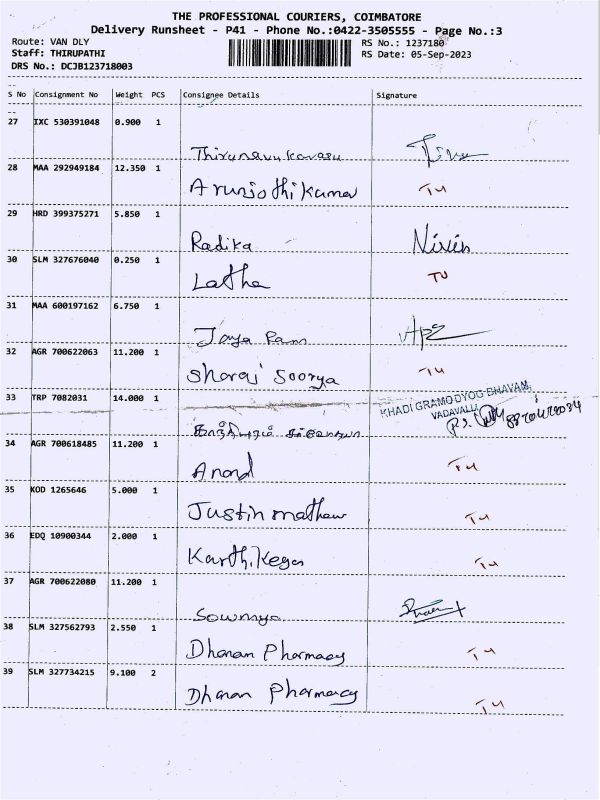 THE PROFESSIONAL COURIERS, COIMBATORE
Delivery Runsheet - P41 - Phone No.:0422-3505555 - Page No.:3
Route: VAN DLY RS No.: 1237180
Staff: THIRUPATHI RS Date: 05-Sep-2023
DRS No.: DCJB123718003
S No Consignment No Weight PCS Consignee Details Signature
27 IXC 530391048 0.900 1
Thirunavukarasu
28 MAA 292949184 12.350 1
Arunjothikumar TU
29 HRD 399375271 5.850 1
Radika Nivin
30 SLM 327676040 0.250 1
Latha TU
31 MAA 600197162 6.750 1
Jaya Ram
32 AGR 700622063 11.200 1
Sharaj Soorya TU
33 TRP 7082031 14.000 1
KHADI GRAMODYOG BHAVAM,
VADAVALLI
34 AGR 700618485 11.200 1
Anand TU
35 KOD 1265646 5.000 1
Justin mathew TU
36 EDQ 10900344 2.000 1
Karthikeyan TU
37 AGR 700622080 11.200 1
Sowmya
38 SLM 327562793 2.550 1
Dhanam Pharmacy TU
39 SLM 327734215 9.100 2
Dhanam Pharmacy TU